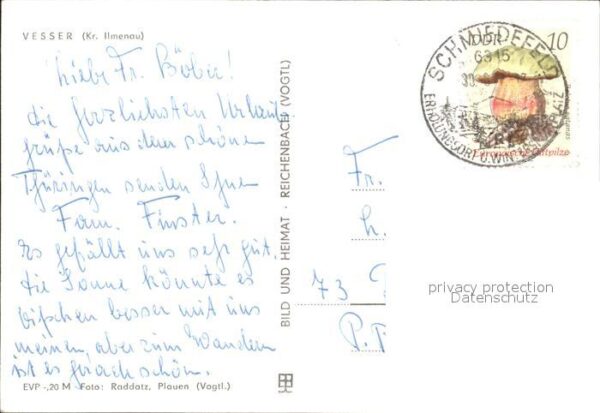 VESSER (Kr. Ilmenau)
Liebe Fr. Böber!
die herzlichsten Urlaubs
grüße aus dem schönen
Thüringen senden Ihnen
Fam. Finster.
Es gefällt uns sehr gut.
die Sonne könnte es
bißchen besser mit uns
meinen, aber zum Wandern
ist es gerade schön.
EVP -,20 M Foto: Raddatz, Plauen (Vogtl.)
BILD UND HEIMAT · REICHENBACH (VOGTL)
SCHMIEDEFELD
6315
ERHOLUNGSORT U. WINTERSPORTPLATZ
DDR 10
Europäische Giftpilze
Fr.
h.
73
P.
privacy protection
Datenschutz